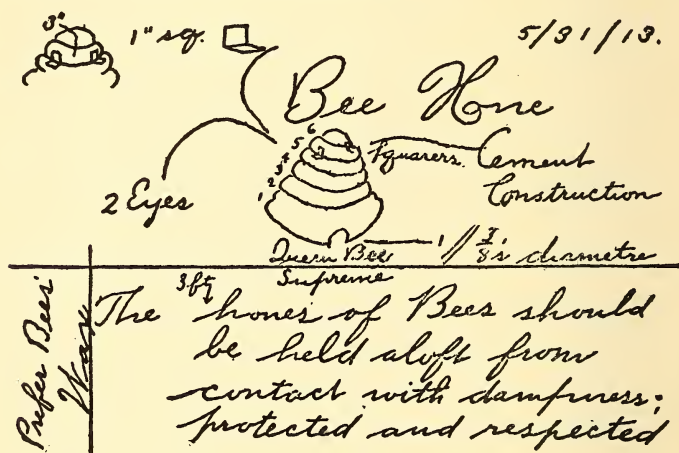 3"
1" sq.
5/31/13.
Bee Hone
6
5
4
3
2
1
Squarers.
Cement
Construction
2 Eyes
Queen Bee
Supreme
1/7/8's diametre
Prefer Bees'
Wax
3ft
The hones of Bees should
be held aloft from
contact with dampness;
protected and respected